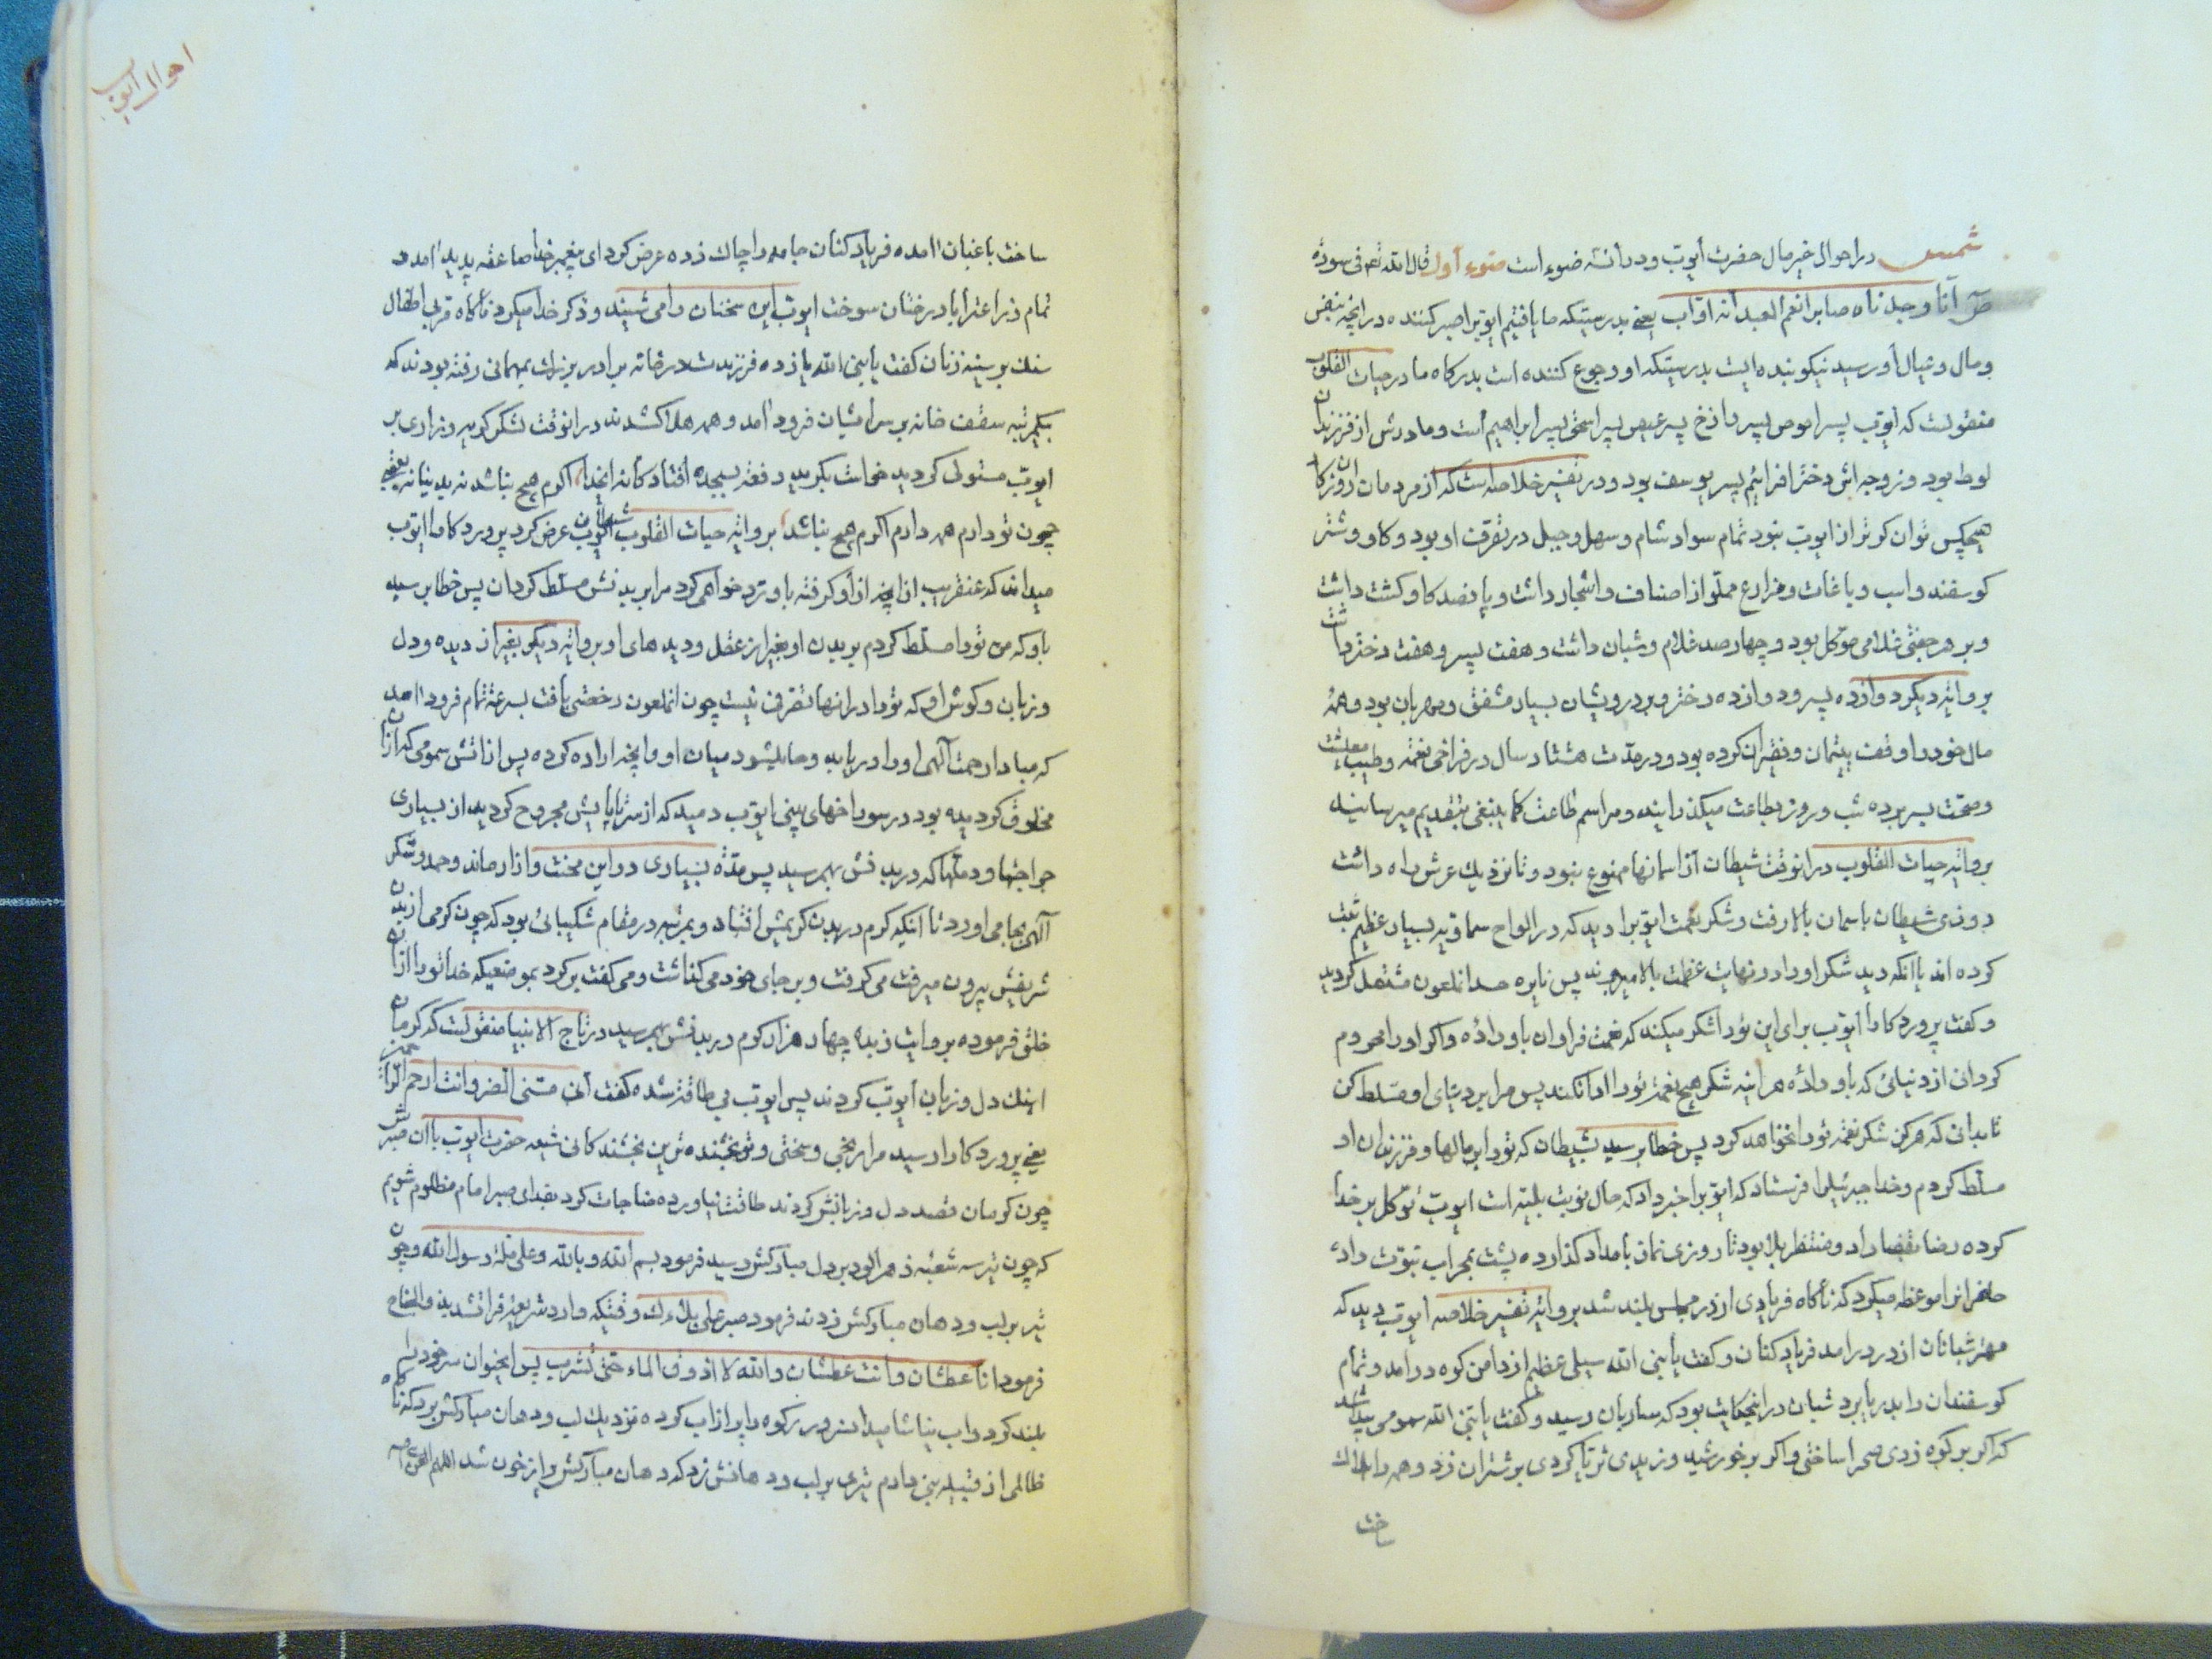 شمس در احوال خیر مال حضرت ایوب و در آن سه ضوء است ضوء اول قال الله تع فی سورة
ص انا وجدناه صابرا نعم العبد انه اواب یعنے بدرستیکه ما یافتیم ایوبرا صبر کننده در انچه بنفس
و مال و عیال او رسید نیکو بنده ایست بدرستیکه او رجوع کننده است بدرکاه ما در حیات القلوب
منقولست که ایوب پسر اموص پسر رازخ پسر عیص پسر اسحق پسر ابراهیم است و مادرش از فرزندان
لوط بود و زوجه اش دختر افرائیم پسر یوسف بود و در تفسیر خلاصه است که از مردمان ان روزکار
هیچکس توانکرتر از ایوب نبود تمام سواد شام و سهل و جبل در تصرف او بود و کاو و شتر
کوسفند و اسب و باغات و مزارع مملو از اصناف و اشجار داشت و پانصد کاو کشت داشت
و بر هر جفتی غلامی موکل بود و چهار صد غلام و شبان داشت و هفت پسر و هفت دختر داشت
بروایة دیکر دوازده پسر و دوازده دختر و بر درویشان بسیار مشفق و مهربان بود و همه
مال خود را وقف یتیمان و فقیران کرده بود و در مدت هشتاد سال در فراخی نعمة و طیب معیشت
و صحت بسر برده شب و روز بطاعت میکذرانید و مراسم طاعت کما ینبغی بتقدیم میرسانید
بروایة حیات القلوب در انوقت شیطان از اسمانها ممنوع نبود و تا نزدیك عرش راه داشت
روزی شیطان باسمان بالا رفت و شکر نعمت ایوبرا دید که در الواح سماویه بسیار عظیم ثبت
کرده اند یا انکه دید شکر او را در نهایت عظمت بالا میبرند پس نایره حسد انملعون مشتعل کردید
و کفت پروردکارا ایوب برای این تو را شکر میکند که نعمت فراوان باو داده و اکر او را محروم
کردانی از دنیائی که باو داده هراینه شکر هیچ نعمة تو را ادا نکند پس مرا بر دنیای او مسلط کن
تا بدانی که هرکز شکر نعمة تو را نخواهد کرد پس خطاب رسید بشیطان که تو را بر مالها و فرزندان او
مسلط کردم و خدا جبرئیلرا فرستاد که ایوبرا خبر داد که حال نوبت بلیه است ایوب توکل بر خدا
کرده رضا بقضا داد و منتظر بلا بود تا روزی نماز بامداد کذارده پشت بمحراب نبوت داده
حاضرانرا موعظه میکرد که ناکاه فریادی از در مجلس بلند شد بروایة تفسیر خلاصه ایوب دید که
مهتر شبانان از در درامد فریاد کنان و کفت یا نبی الله سیلی عظیم از دامن کوه درامد و تمام
کوسفندان را بدریا برد شبان در اینحکایت بود که ساربان رسید و کفت یا نبی الله سمومی پیدا شد
که اکر بر کوه زدی صحرا ساختی و اکر بر خورشید وزیدی ثریا کردی بر شتران زد و همه را هلاك
ساخت
احوال ایوب
ساخت باغبان امده فریاد کنان جامه را چاك زده عرض کرد ای پیغمبر خدا صاعقه پدید امد و
تمام زراعترا با درختان سوخت ایوب این سخنان را می شنید و ذکر خدا میکرد ناکاه مربی اطفال
سنك بر سینه زنان کفت یا نبی الله یازده فرزندت در خانه برادر بزرك بمهمانی رفته بودند که
یکمرتبه سقف خانه بر سر ایشان فرود امد و همه هلاك شدند در انوقت لشکر کریه و زاری بر
ایوب مستولی کردید خواست بکرید دفعة بسجده افتاد که خدایا اکرم هیچ نباشد نه بدنیا نه بعقبی
چون تو دارم همه دارم اکرم هیچ نباشد بروایة حیات القلوب شیطان عرض کرد پروردکارا ایوب
میداند که عنقریب از انچه از او کرفته باو رد خواهی کرد مرا بر بدنش مسلط کردان پس خطاب رسید
باو که من تو را مسلط کردم بر بدن او بغیر از عقل و دیدهای او بروایة دیکر بغیر از دیده و دل
و زبان و کوش او که تو را در انها تصرف نیست چون انملعون رخصتی یافت بسرعة تمام فرود امد
که مبادا رحمت الهی او را دریابد و حایل شود میان او و انچه اراده کرده پس از اتش سمومی که از ان
مخلوق کردیده بود در سوراخهای بینی ایوب دمید که از سر تا پایش مجروح کردید از بسیاری
جراحتها و دملها که در بدنش بهم رسید پس مدة بسیاری در این محنت و ازار ماند و حمد و شکر
الهی بجا می اورد تا انکه کرم در بدن کریمش افتاد و بمرتبه در مقام شکیبائی بود که چون کرمی از بدن
شریفش بیرون میرفت می کرفت و بر جای خود می کذاشت و می کفت برکرد بموضعیکه خدا تو را از ان
خلق فرموده بروایت زبده چهار هزار کرم در بدنش بهم رسید در تاج الانبیا منقولست که کرمان
اهنك دل و زبان ایوب کردند پس ایوب بی طاقت شده کفت انی مسنی الضر و انت ارحم الراحمین
یعنے پروردکارا رسید مرا رنجی و سختی و تو بخشنده ترین بخشندکانی شیعه حضرت ایوب با ان صبرش
چون کرمان قصد دل و زبانش کردند طاقت نیاورده مناجات کرد بفدای صبر امام مظلوم شویم
که چون تیر سه شعبه زهر الود بر دل مبارکش رسید فرمود بسم الله و بالله و علی ملة رسول الله و چون
تیر بر لب و دهان مبارکش زدند فرمود صبر علی بلائك وقتیکه وارد شریعه فرات شد بذوالجناح
فرمود انا عطشان و انت عطشان و الله لا اذوق الماء حتی تشرب پس انحیوان سر خود را
بلند کرد و اب نیاشامید انسرور رکوه را پر از اب کرده نزدیك لب و دهان مبارکش برد که ناکاه
ظالمی از قبیله بنی دارم تیری بر لب و دهانش زد که دهان مبارکش پر از خون شد اللهم العن